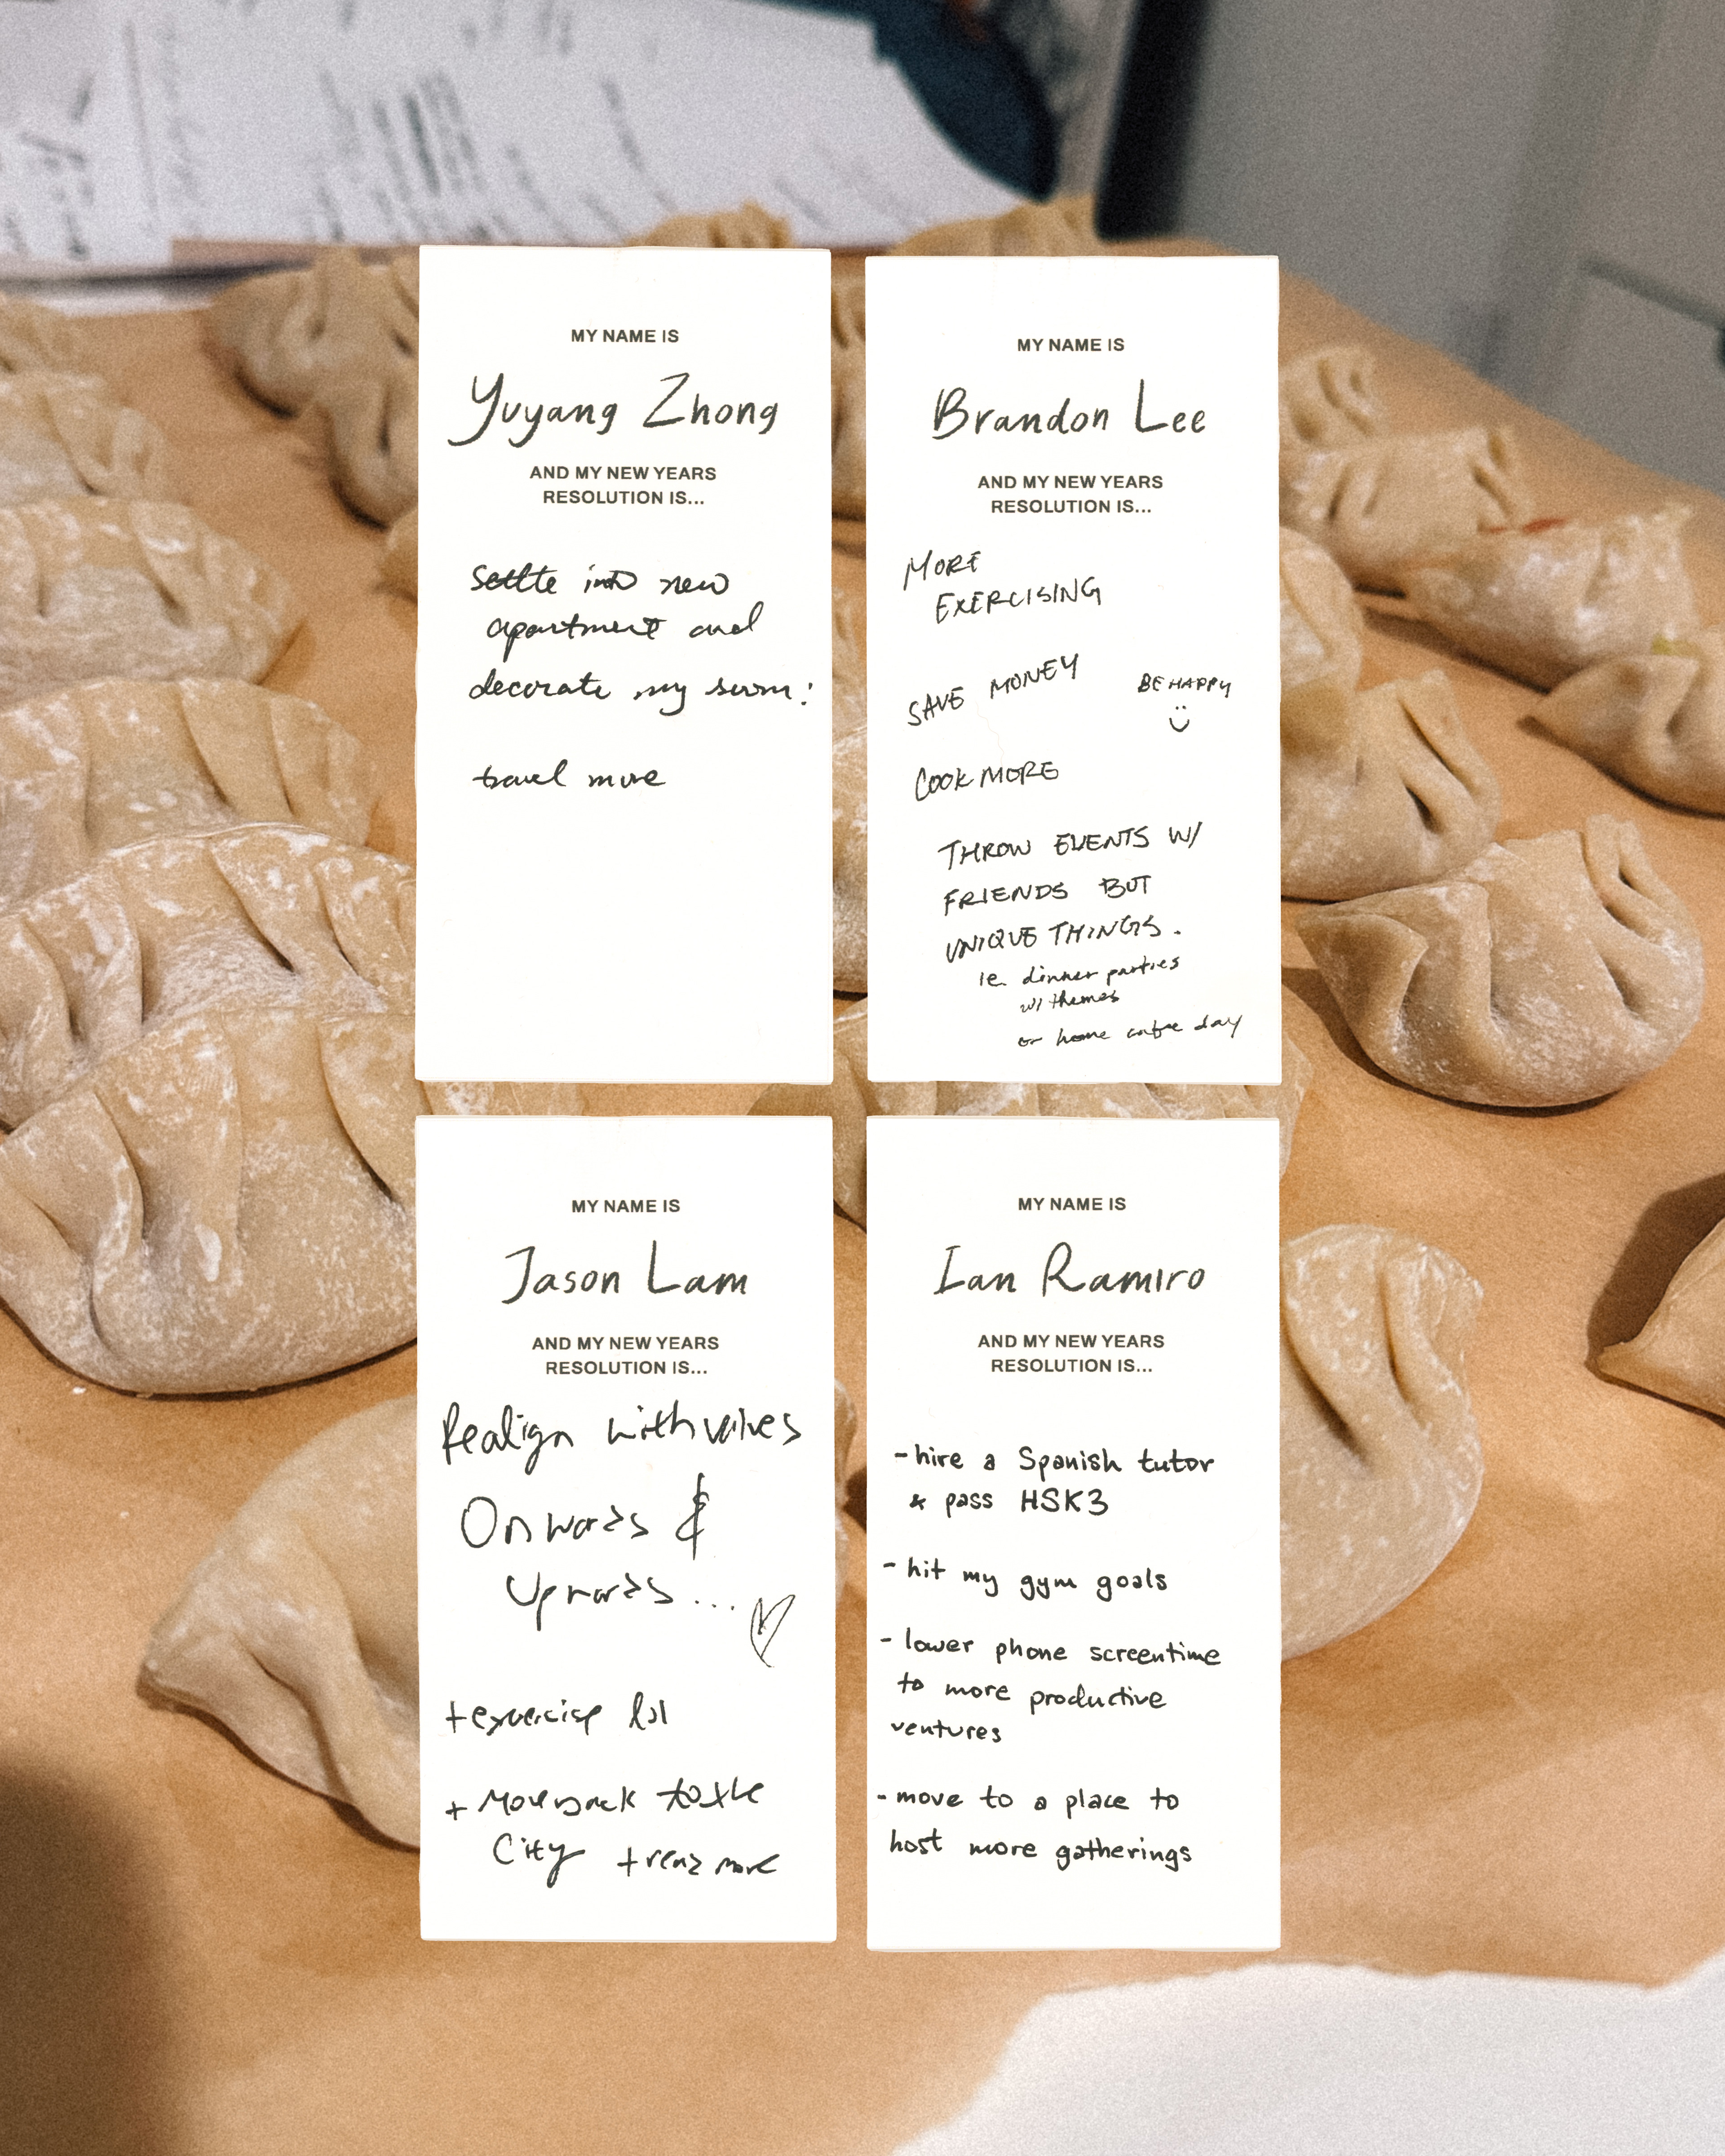 MY NAME IS
Yuyang Zhong
AND MY NEW YEARS
RESOLUTION IS...
settle into new
apartment and
decorate my room!
travel more
MY NAME IS
Brandon Lee
AND MY NEW YEARS
RESOLUTION IS...
MORE
EXERCISING
SAVE MONEY
BE HAPPY
COOK MORE
THROW EVENTS W/
FRIENDS BUT
UNIQUE THINGS.
ie. dinner parties
w/ themes
or home day
MY NAME IS
Jason Lam
AND MY NEW YEARS
RESOLUTION IS...
Realign with values
Onwards &
Upwards...
+ exercise lol
+ Move back to the
City + read more
MY NAME IS
Ian Ramiro
AND MY NEW YEARS
RESOLUTION IS...
- hire a Spanish tutor
& pass HSK3
- hit my gym goals
- lower phone screentime
to more productive
ventures
- move to a place to
host more gatherings